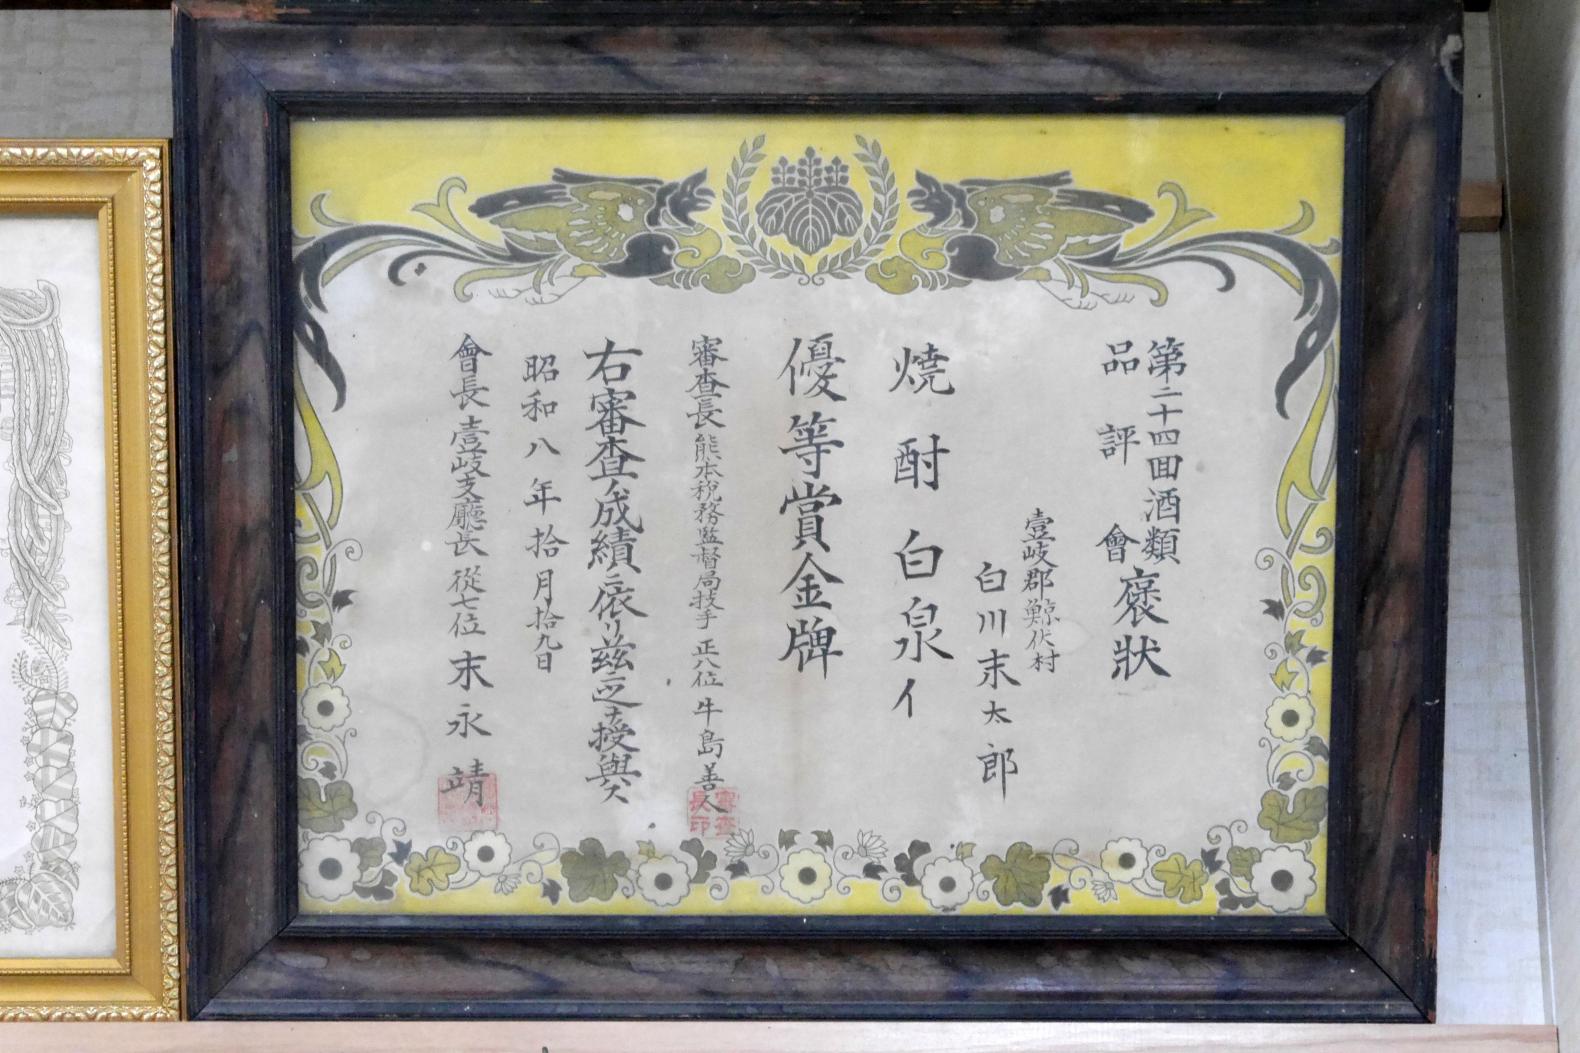 第二十四回酒類
品評會
褒狀
壹岐郡鯨伏村
白川末太郎
焼酎白泉イ
優等賞金牌
審查長熊本税務監督局技手正八位牛島善人
右審查ノ成績ニ依リ茲ニ之ヲ授與ス
昭和八年拾月拾九日
會長壹岐支廳長從七位末永靖
審查長印